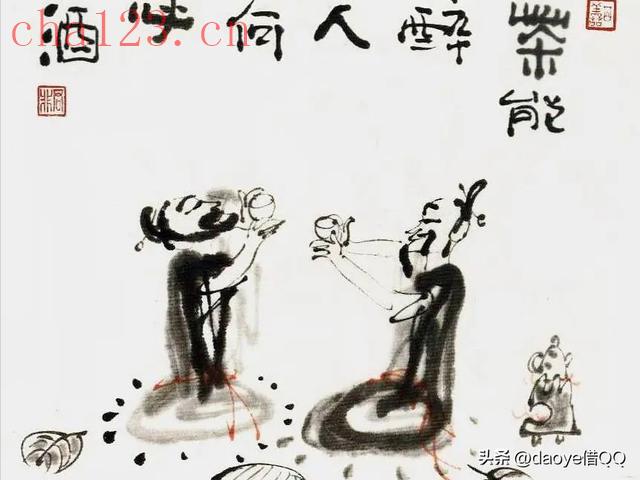 茶能醉人何必酒
cha123.cn
头条 @daoye借QQ